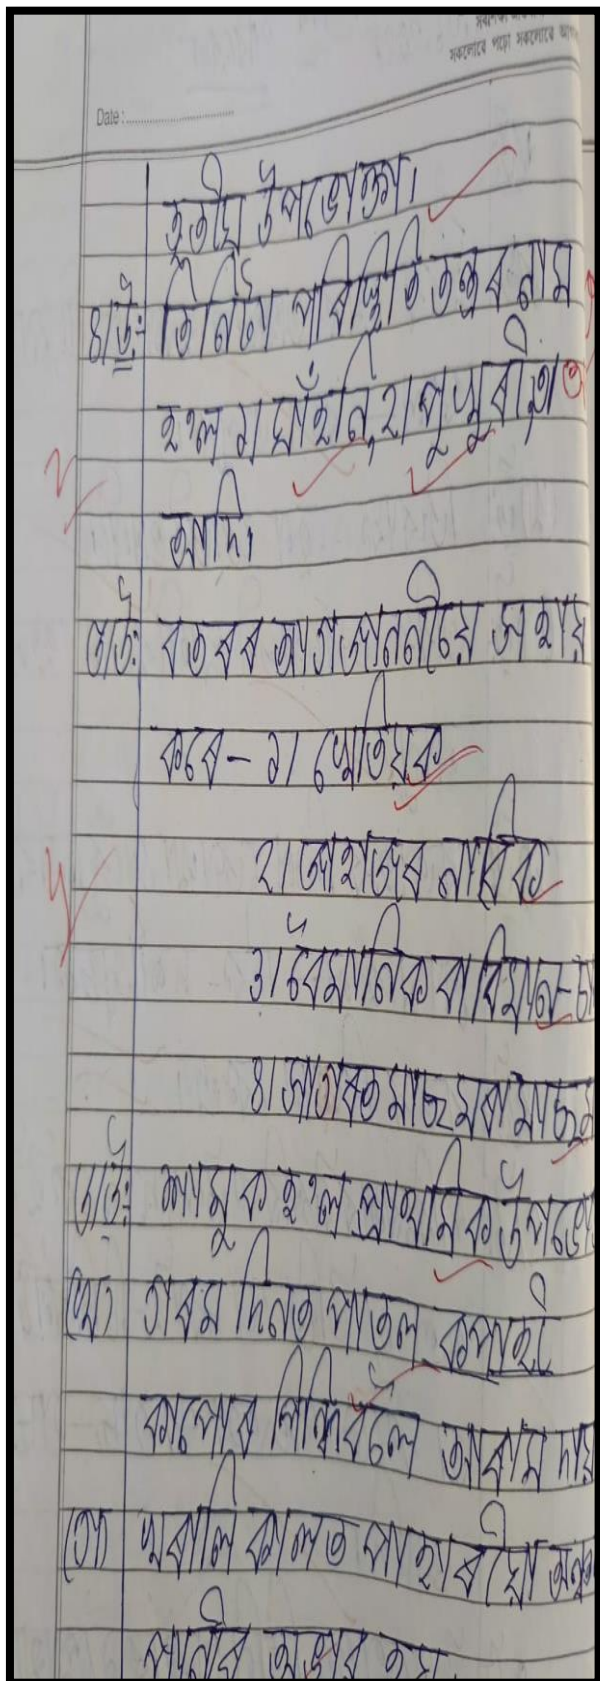 সকলোৱে পঢ়ো সকলোৱে
Date :
তৃতীয় উপভোক্তা।
৪/উঃ তিনিটা পৰিস্থিতি তন্ত্ৰৰ নাম
হ'ল ১/ ঘাঁহনি, ২/ পুখুৰী, ৩
আদি।
বতৰৰ আগজাননীয়ে সহায়
কৰে - ১/ খেতিয়ক
২/ জাহাজৰ নাবিক
৩/ বৈমানিক বা বিমান-চা
৪/ সাগৰত মাছ মৰা মাছম
শামুক হ'ল প্ৰাথমিক উপভো
গৰম দিনত পাতল কপাহী
কাপোৰ পিন্ধিবলৈ আৰাম দায়
খৰালি কালত পাহাৰীয়া অঞ্চ
পানীৰ অভাৱ হয়